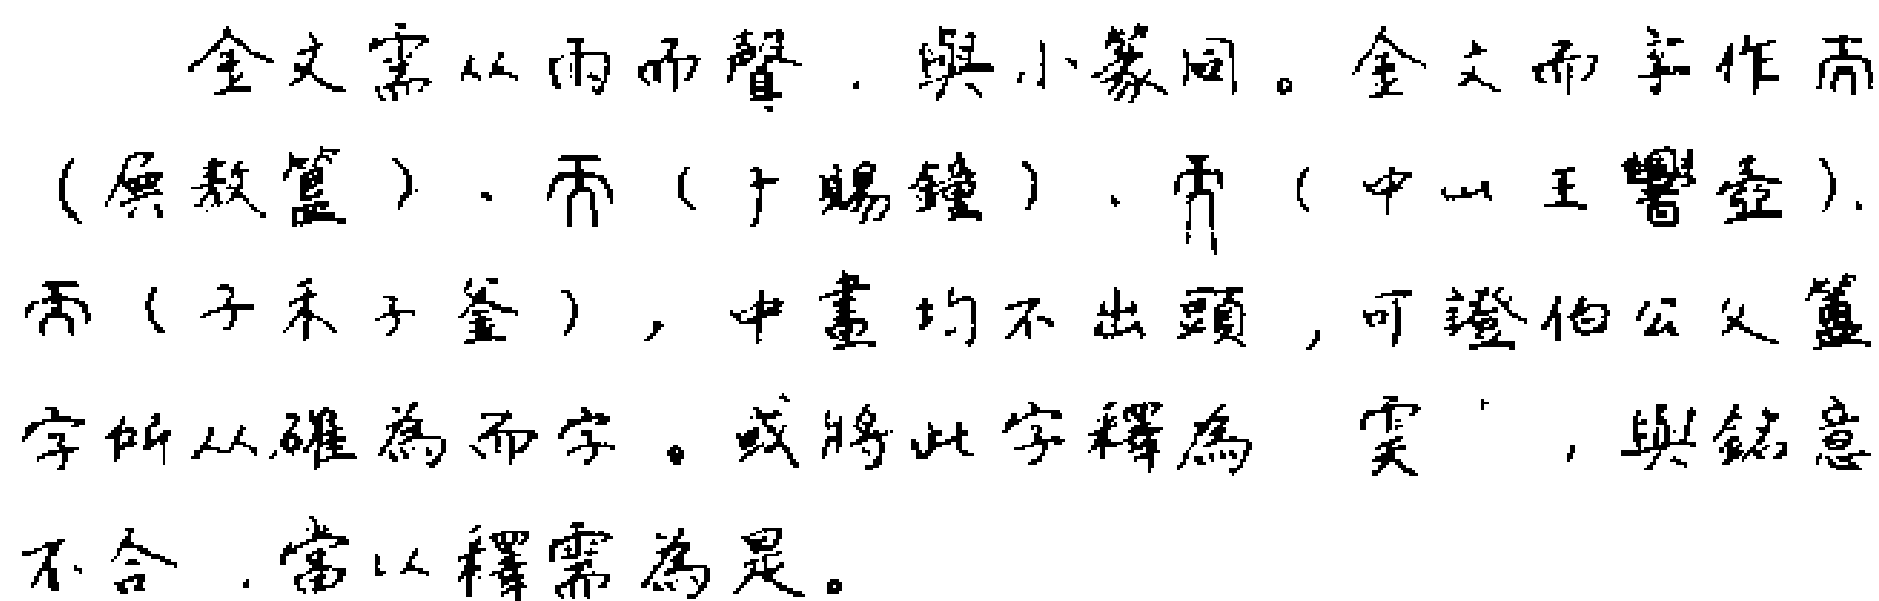 金文需从雨而聲，與小篆同。金文而字作而
（屖敖簋）、而（子賜鐘）、而（中山王𰯼壺）、
而（子禾子釜），中畫均不出頭，可證伯公父簠
字所从確為而字。或將此字釋為　䨋　，與銘意
不合，當以釋需為是。